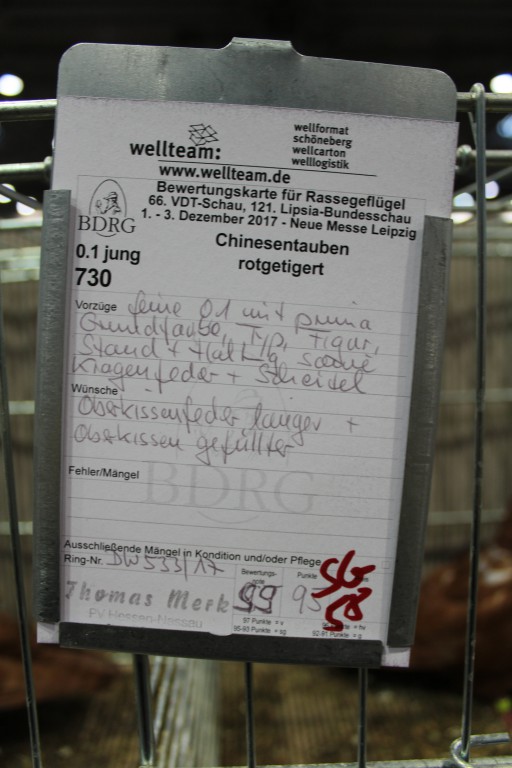 wellteam:
wellformat
schöneberg
wellcarton
welllogistik
www.wellteam.de
Bewertungskarte für Rassegeflügel
66. VDT-Schau, 121. Lipsia-Bundesschau
1. - 3. Dezember 2017 - Neue Messe Leipzig
BDRG
Chinesentauben
rotgetigert
0.1 jung
730
Vorzüge feine 0.1 mit prima
Grundfarbe, Typ, Figur,
Stand + Haltung sowie
Kragenfeder + Scheitel
Wünsche
Oberkissenfeder länger +
Oberkissen gefüllter
Fehler/Mängel
BDRG
Ausschließende Mängel in Kondition und/oder Pflege
Ring-Nr. DW 533/17
Bewertungs-
Punkte
SG
Thomas Merk
PV Hessen-Nassau
sg
95
97 Punkte = v
95-93 Punkte = sg
92-91 Punkte = g